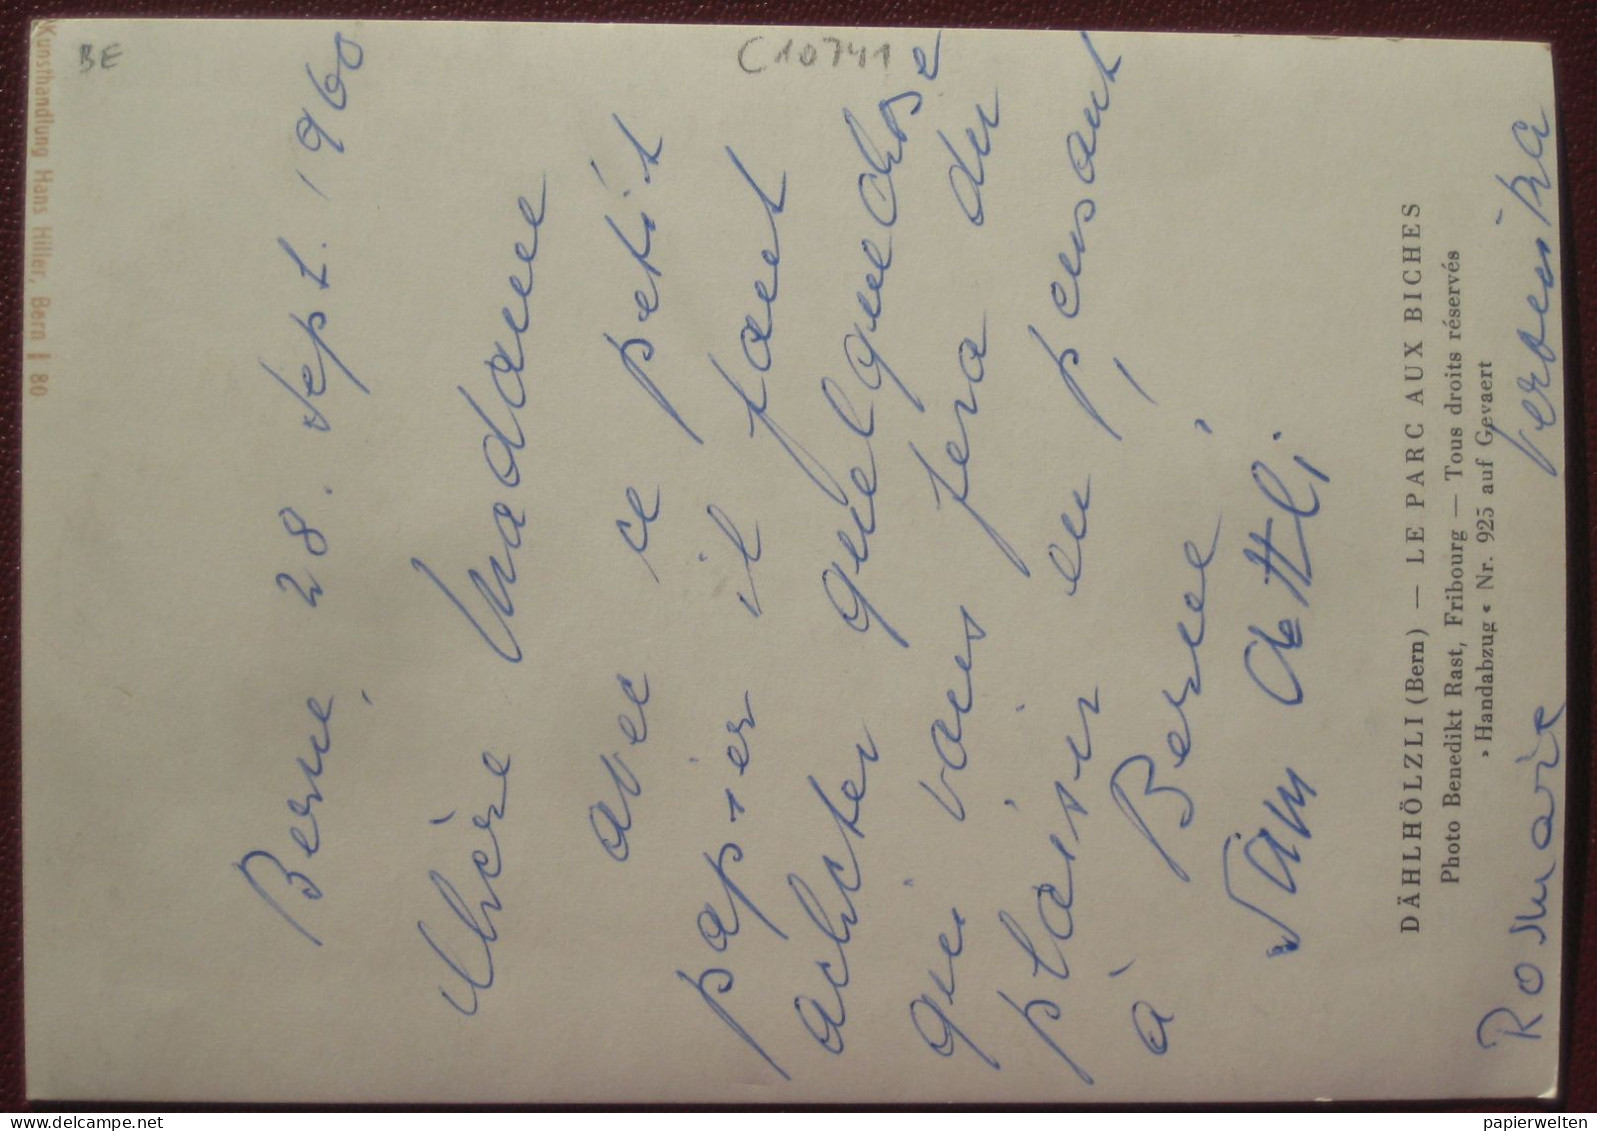 BE
C10741
Kunsthandlung Hans Hiller, Bern | 80
Berne, 28. Sept. 1960
Chère Madame
avec ce petit
papier il faut
achter quelquechose
qui vous fera du
plaisir en pensant
à Berne!
Fam Aettli
DÄHLHÖLZLI (Bern) — LE PARC AUX BICHES
Photo Benedikt Rast, Fribourg — Tous droits réservés
»Handabzug« Nr. 925 auf Gevaert
Rosmarie Veronika
papierwelten